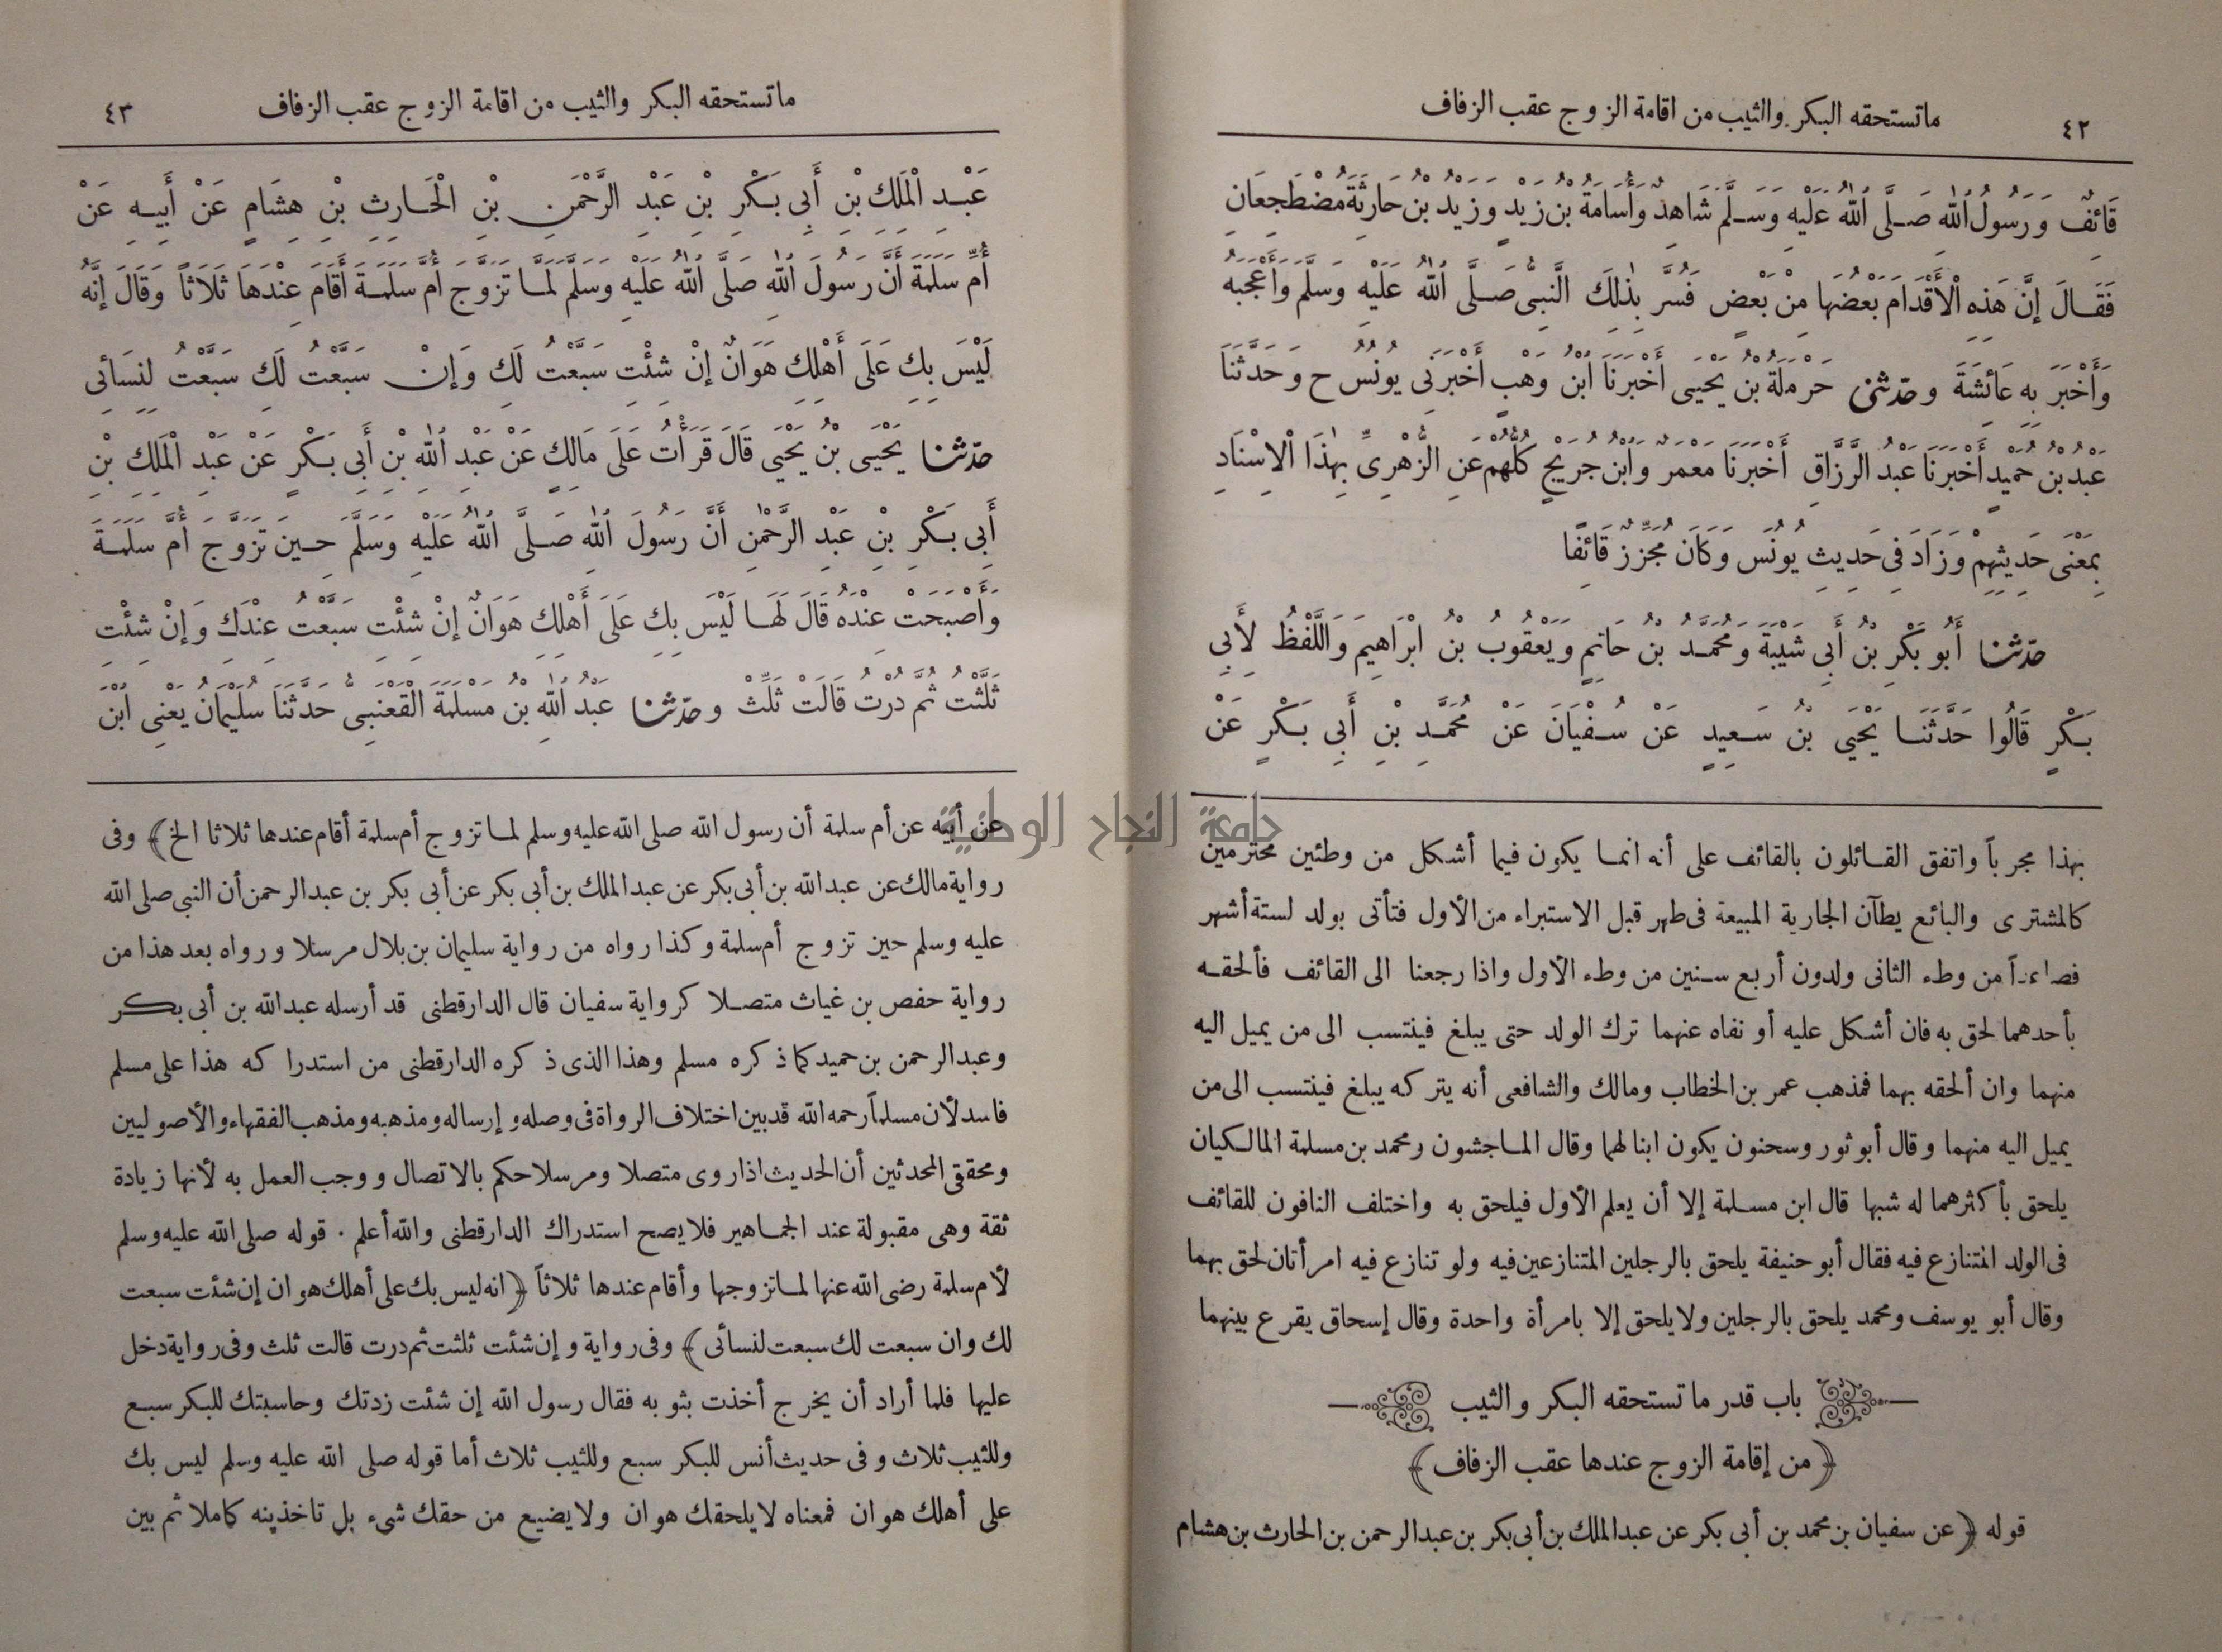 ماتستحقه البكر والثيب من اقامة الزوج عقب الزفاف
٤٢
قَائِفٌ وَرَسُولُ اللهِ صَلَّى اللهُ عَلَيْهِ وَسَلَّمَ شَاهِدٌ وَأُسَامَةُ بْنُ زَيْدٍ وَزَيْدُ بْنُ حَارِثَةَ مُضْطَجِعَانِ
فَقَالَ إِنَّ هَذِهِ الْأَقْدَامَ بَعْضُهَا مِنْ بَعْضٍ فَسُرَّ بِذَلِكَ النَّبِىُّ صَلَّى اللهُ عَلَيْهِ وَسَلَّمَ وَأَعْجَبَهُ
وَأَخْبَرَ بِهِ عَائِشَةَ وحدّثنى حَرْمَلَةُ بْنُ يَحْيَى أَخْبَرَنَا ابْنُ وَهْبٍ أَخْبَرَنِى يُونُسُ ح وَحَدَّثَنَا
عَبْدُ بْنُ حُمَيْدٍ أَخْبَرَنَا عَبْدُ الرَّزَّاقِ أَخْبَرَنَا مَعْمَرٌ وَابْنُ جُرَيْجٍ كُلُّهُمْ عَنِ الزُّهْرِىِّ بِهٰذَا الْاِسْنَادِ
بِمَعْنَى حَدِيثِهِمْ وَزَادَ فِى حَدِيثِ يُونُسَ وَكَانَ مُجَزِّزٌ قَائِفًا
حدّثنا أَبُو بَكْرِ بْنُ أَبِى شَيْبَةَ وَمُحَمَّدُ بْنُ حَاتِمٍ وَيَعْقُوبُ بْنُ ابْرَاهِيمَ وَاللَّفْظُ لِأَبِى
بَكْرٍ قَالُوا حَدَّثَنَا يَحْيَى بْنُ سَعِيدٍ عَنْ سُفْيَانَ عَنْ مُحَمَّدِ بْنِ أَبِى بَكْرٍ عَنْ
بهذا مجرباً واتفق القائلون بالقائف على أنه انما يكون فيما أشكل من وطئين محترمين
كالمشترى والبائع يطآن الجارية المبيعة فى طهر قبل الاستبراء من الأول فتأتى بولد لستة أشهر
فصاعداً من وطء الثانى ولدون أربع سنين من وطء الأول واذا رجعنا الى القائف فألحقه
بأحدهما لحق به فان أشكل عليه أو نفاه عنهما ترك الولد حتى يبلغ فينتسب الى من يميل اليه
منهما وان ألحقه بهما فمذهب عمر بن الخطاب ومالك والشافعى أنه يتركه يبلغ فينتسب الى من
يميل اليه منهما وقال أبو ثور وسحنون يكون ابنا لهما وقال الماجشون ومحمد بن مسلمة المالكيان
يلحق بأكثرهما له شبها قال ابن مسلمة إلا أن يعلم الأول فيلحق به واختلف النافون للقائف
فى الولد المتنازع فيه فقال أبو حنيفة يلحق بالرجلين المتنازعين فيه ولو تنازع فيه امرأتان لحق بهما
وقال أبو يوسف ومحمد يلحق بالرجلين ولا يلحق إلا بامرأة واحدة وقال إسحاق يقرع بينهما
باب قدر ما تستحقه البكر والثيب
﴿من إقامة الزوج عندها عقب الزفاف﴾
قوله ﴿عن سفيان بن محمد بن أبى بكر عن عبد الملك بن أبى بكر بن عبد الرحمن بن الحارث بن هشام
ماتستحقه البكر والثيب من اقامة الزوج عقب الزفاف
٤٣
عَبْدِ الْمَلِكِ بْنِ أَبِى بَكْرِ بْنِ عَبْدِ الرَّحْمَنِ بْنِ الْحَارِثِ بْنِ هِشَامٍ عَنْ أَبِيهِ عَنْ
أُمِّ سَلَمَةَ أَنَّ رَسُولَ اللهِ صَلَّى اللهُ عَلَيْهِ وَسَلَّمَ لَمَّا تَزَوَّجَ أُمَّ سَلَمَةَ أَقَامَ عِنْدَهَا ثَلَاثًا وَقَالَ إِنَّهُ
لَيْسَ بِكِ عَلَى أَهْلِكِ هَوَانٌ إِنْ شِئْتِ سَبَّعْتُ لَكِ وَإِنْ سَبَّعْتُ لَكِ سَبَّعْتُ لِنِسَائِى
حدّثنا يَحْيَى بْنُ يَحْيَى قَالَ قَرَأْتُ عَلَى مَالِكٍ عَنْ عَبْدِ اللهِ بْنِ أَبِى بَكْرٍ عَنْ عَبْدِ الْمَلِكِ بْنِ
أَبِى بَكْرِ بْنِ عَبْدِ الرَّحْمٰنِ أَنَّ رَسُولَ اللهِ صَلَّى اللهُ عَلَيْهِ وَسَلَّمَ حِينَ تَزَوَّجَ أُمَّ سَلَمَةَ
وَأَصْبَحَتْ عِنْدَهُ قَالَ لَهَا لَيْسَ بِكِ عَلَى أَهْلِكِ هَوَانٌ إِنْ شِئْتِ سَبَّعْتُ عِنْدَكِ وَإِنْ شِئْتِ
ثَلَّثْتُ ثُمَّ دُرْتُ قَالَتْ ثَلِّثْ وحدّثنا عَبْدُ اللهِ بْنُ مَسْلَمَةَ الْقَعْنَبِىُّ حَدَّثَنَا سُلَيْمَانُ يَعْنِى ابْنَ
عن أبيه عن أم سلمة أن رسول الله صلى الله عليه وسلم لما تزوج أم سلمة أقام عندها ثلاثا الخ﴾ وفى
رواية مالك عن عبد الله بن أبى بكر عن عبد الملك بن أبى بكر عن أبى بكر بن عبد الرحمن أن النبى صلى الله
عليه وسلم حين تزوج أم سلمة وكذا رواه من رواية سليمان بن بلال مرسلا ورواه بعد هذا من
رواية حفص بن غياث متصلا كرواية سفيان قال الدارقطنى قد أرسله عبد الله بن أبى بكر
وعبد الرحمن بن حميد كما ذكره مسلم وهذا الذى ذكره الدارقطنى من استدراكه هذا على مسلم
فاسد لأن مسلماً رحمه الله قد بين اختلاف الرواة فى وصله و إرساله ومذهبه ومذهب الفقهاء والأصوليين
ومحققى المحدثين أن الحديث اذا روى متصلا ومرسلا حكم بالاتصال ووجب العمل به لأنها زيادة
ثقة وهى مقبولة عند الجماهير فلا يصح استدراك الدارقطنى والله أعلم . قوله صلى الله عليه وسلم
لأم سلمة رضى الله عنها لما تزوجها وأقام عندها ثلاثاً ﴿انه ليس بك على أهلك هوان إن شئت سبعت
لك وان سبعت لك سبعت لنسائى﴾ وفى رواية وإن شئت ثلثت ثم درت قالت ثلث وفى رواية دخل
عليها فلما أراد أن يخرج أخذت بثوبه فقال رسول الله إن شئت زدتك وحاسبتك للبكر سبع
وللثيب ثلاث وفى حديث أنس للبكر سبع وللثيب ثلاث أما قوله صلى الله عليه وسلم ليس بك
على أهلك هوان فمعناه لا يلحقك هوان ولا يضيع من حقك شىء بل تاخذينه كاملا ثم بين
جامعة النجاح الوطنية